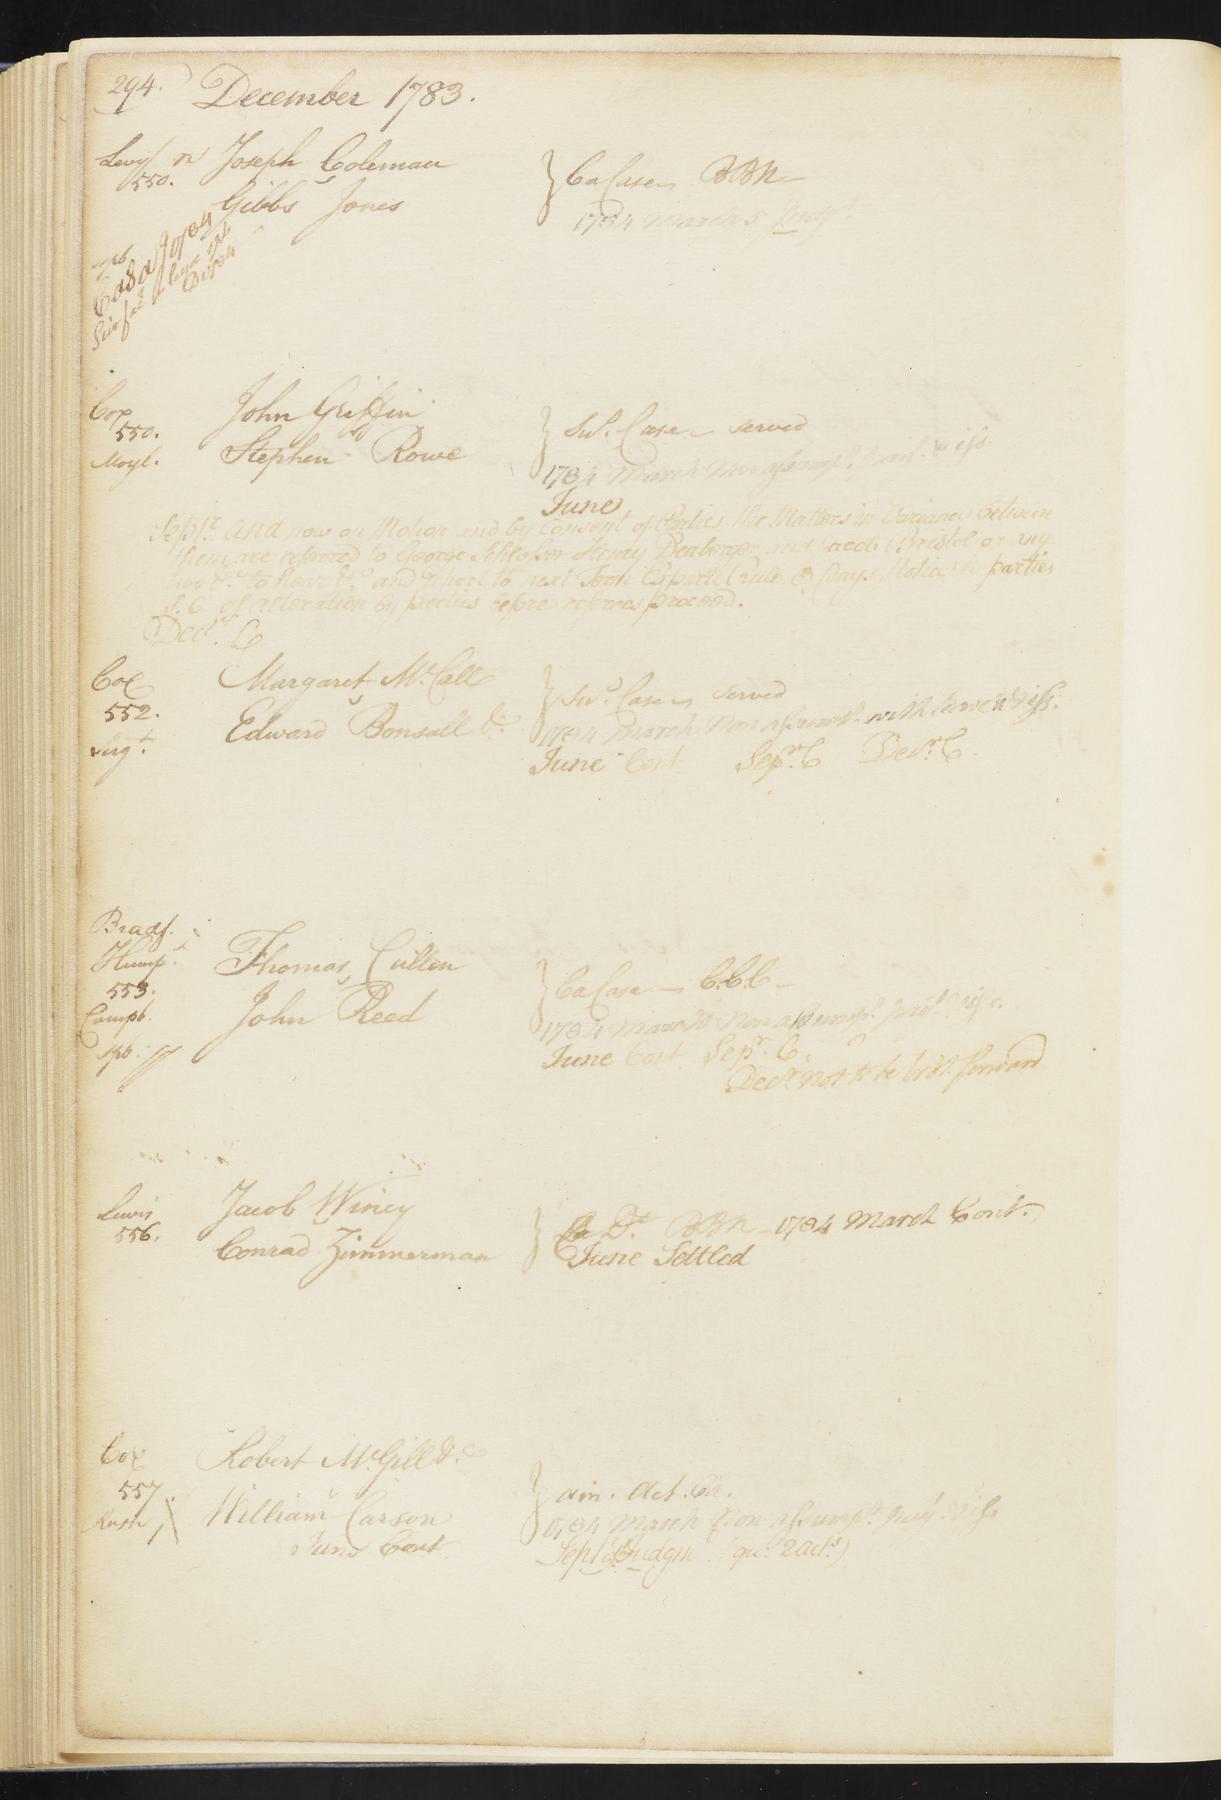 294. December 1783.
Levy n Joseph Coleman
550. Gibbs Jones
Ca Case BBN
1784 March 5 Judgt.
Spb
CaSa J 0784
Cox John Griffin
550.
Moyl. Stephen Rowe
Sus. Case served
1784 March Non assumpt. & iss.
June
Sepr. And now on Motion and by Consent of Parties the Matters in Variance between
them are referred to George Schlosser Henry Deaberger and Jacob Bristol or any
two &c. to hear &c. and report to next Term Exparte Rule Days Notice to parties
of alteration by parties before referees proceed.
Decr. C
Cox Margaret McCall
552.
Edward Bonsall &c.
Sus. Case served
1784 March Non Assumpt. with leave & iss.
June Cont. Sepr. C Decr. C
Bradf.
Hump. Thomas Cullen
553.
Campb. John Reed
Spb.
Ca Case C.C.C
1784 March Non assumpt. & iss.
June Cont. Sepr. C.
Decr. not to be brot. forward
Lewis Jacob Winey
556. Conrad Zimmerman
Dt. BBN 1784 March Cont.
June Settled
Cox Robert McGill &c.
557.
Rush William Carson
June Cont.
am. Act. Ca.
1784 March Non Assumpt. & iss
Sepr. (qu. 2 acts)